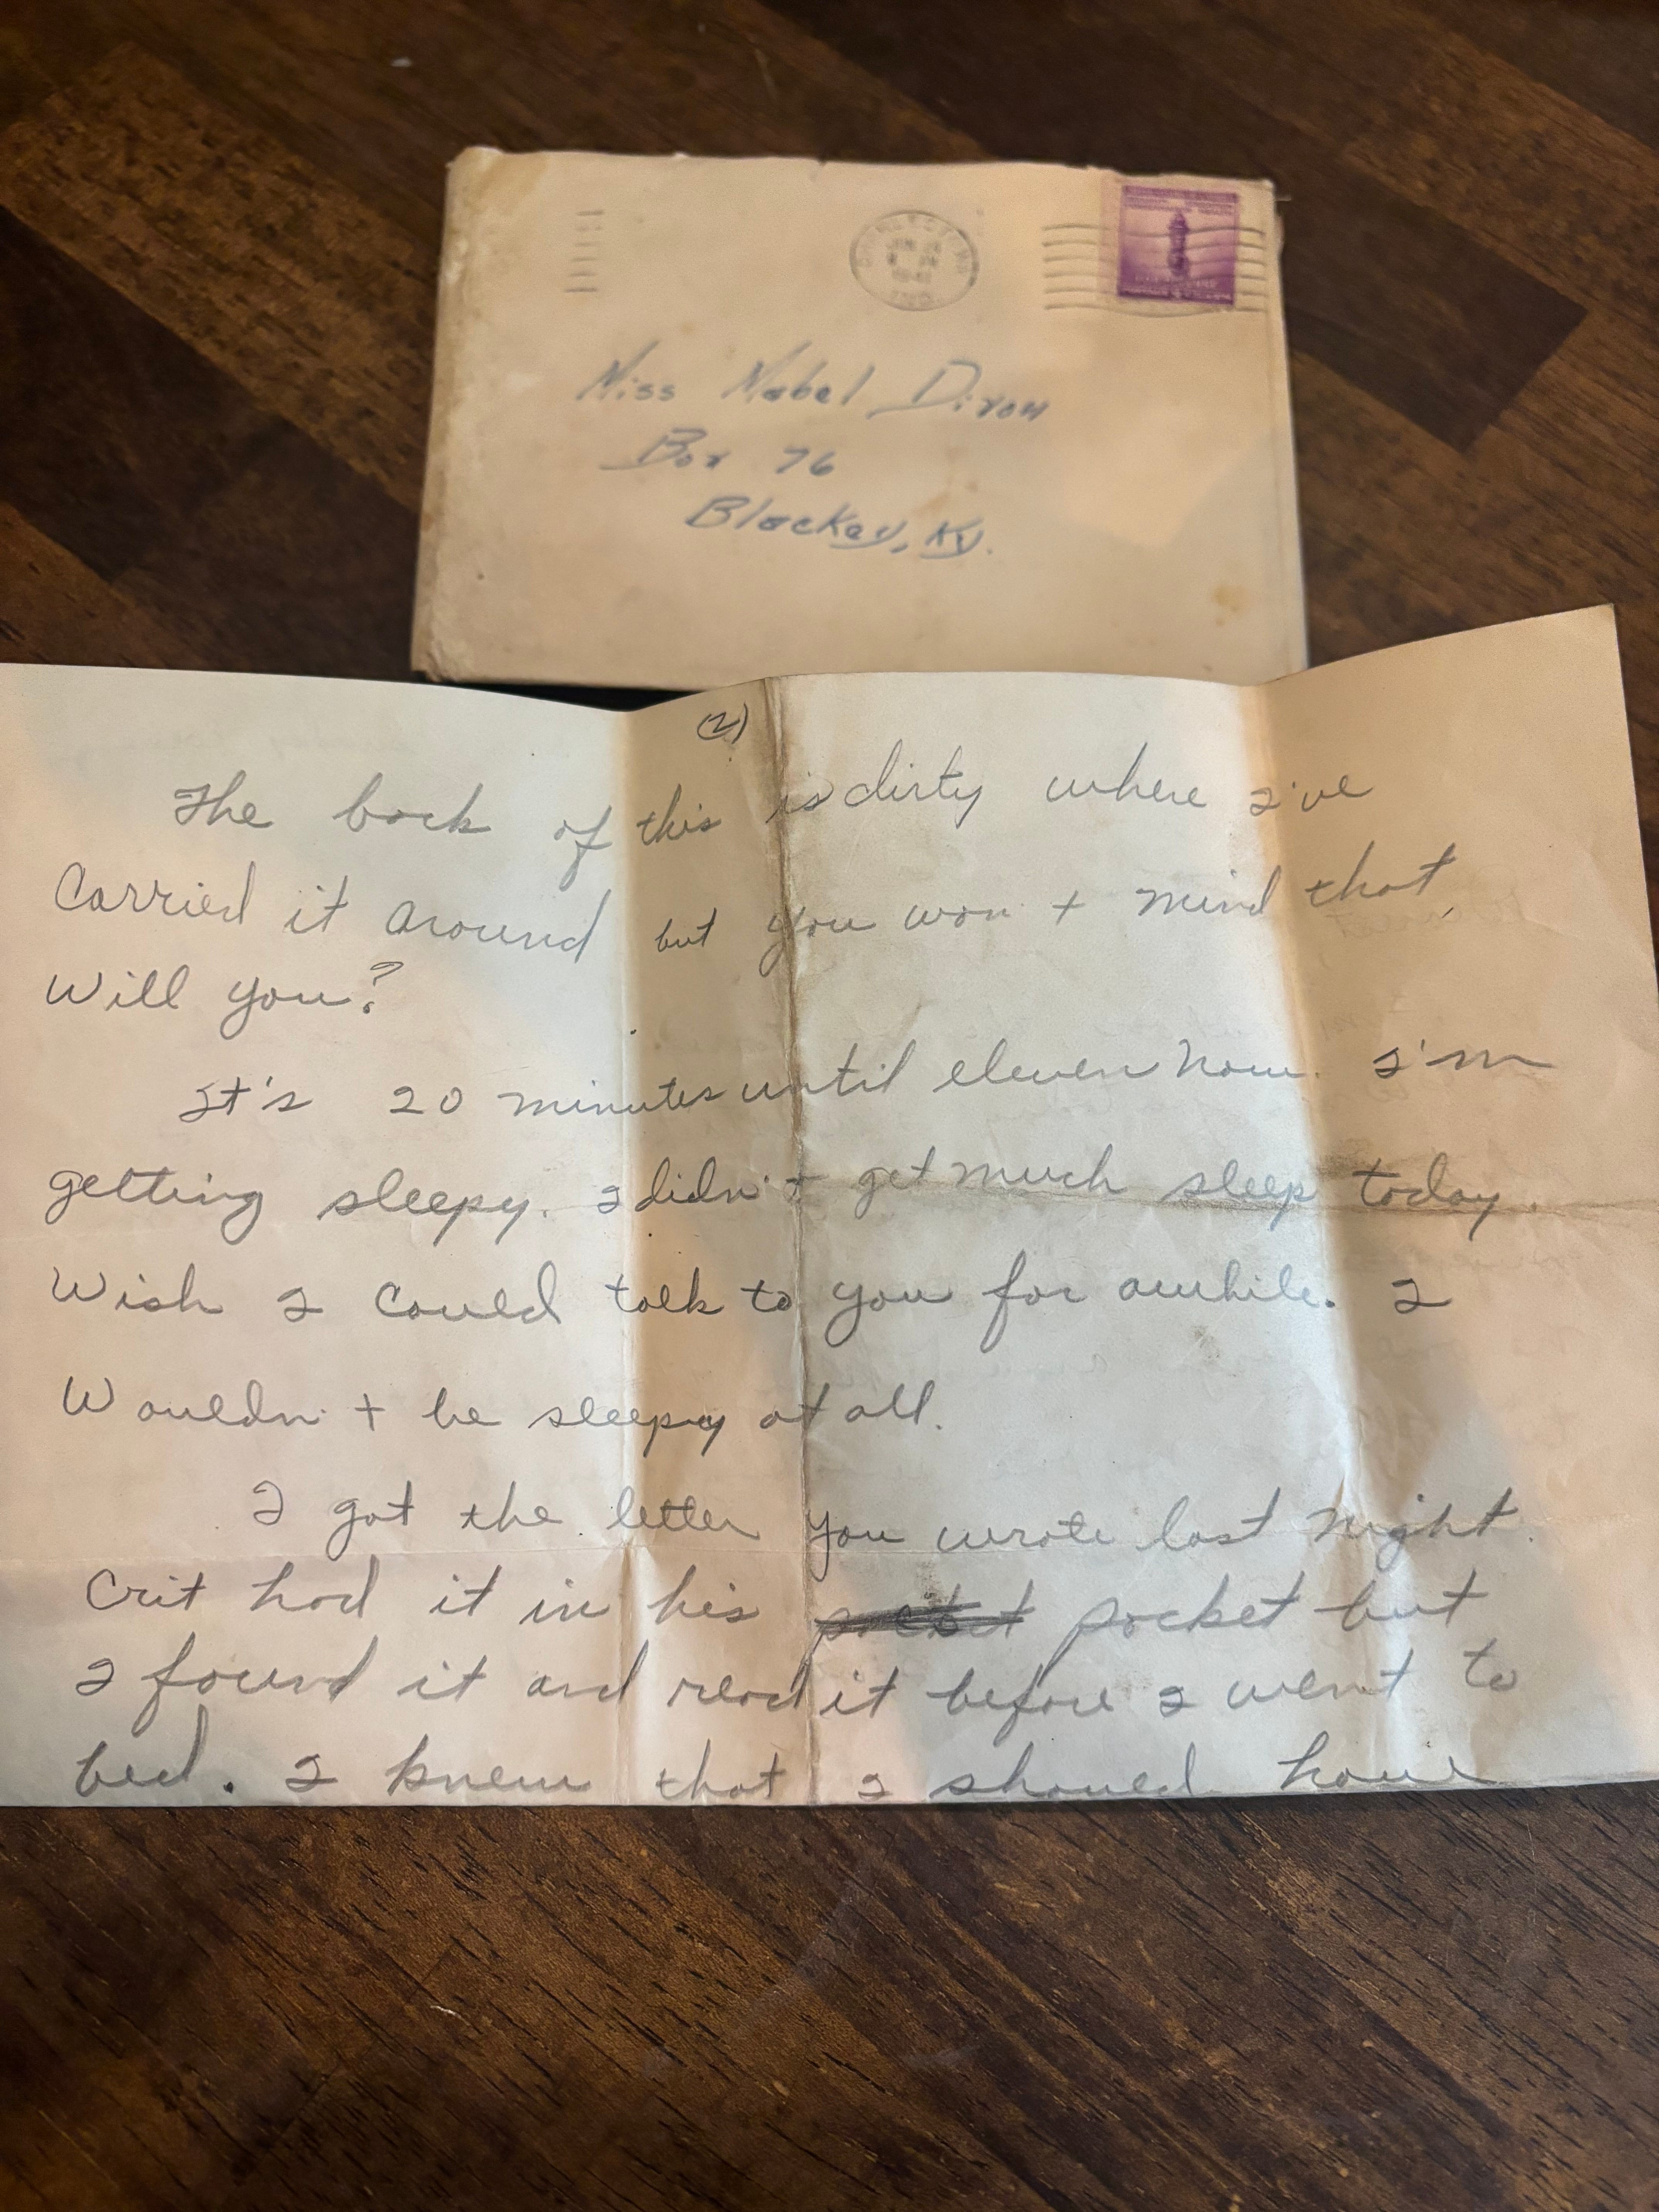 Miss Mabel Dixon
Box 76
Blackey, Ky.
(2)
The back of this is dirty where I've
carried it around but you won't mind that,
will you?
It's 20 minutes until eleven now. I'm
getting sleepy. I didn't get much sleep today.
Wish I could talk to you for awhile. I
wouldn't be sleepy at all.
I got the letter you wrote last night.
Crit had it in his pocket but
I found it and read it before I went to
bed. I knew that I should have